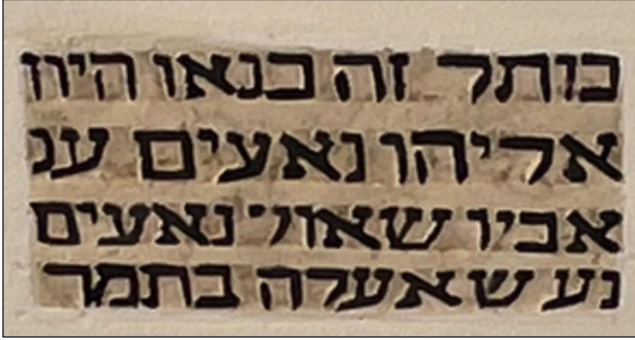 כותל זה בנאו
אליהו נאעים ענ
אביו שאול נאעים
נע ש אעלה בתמר